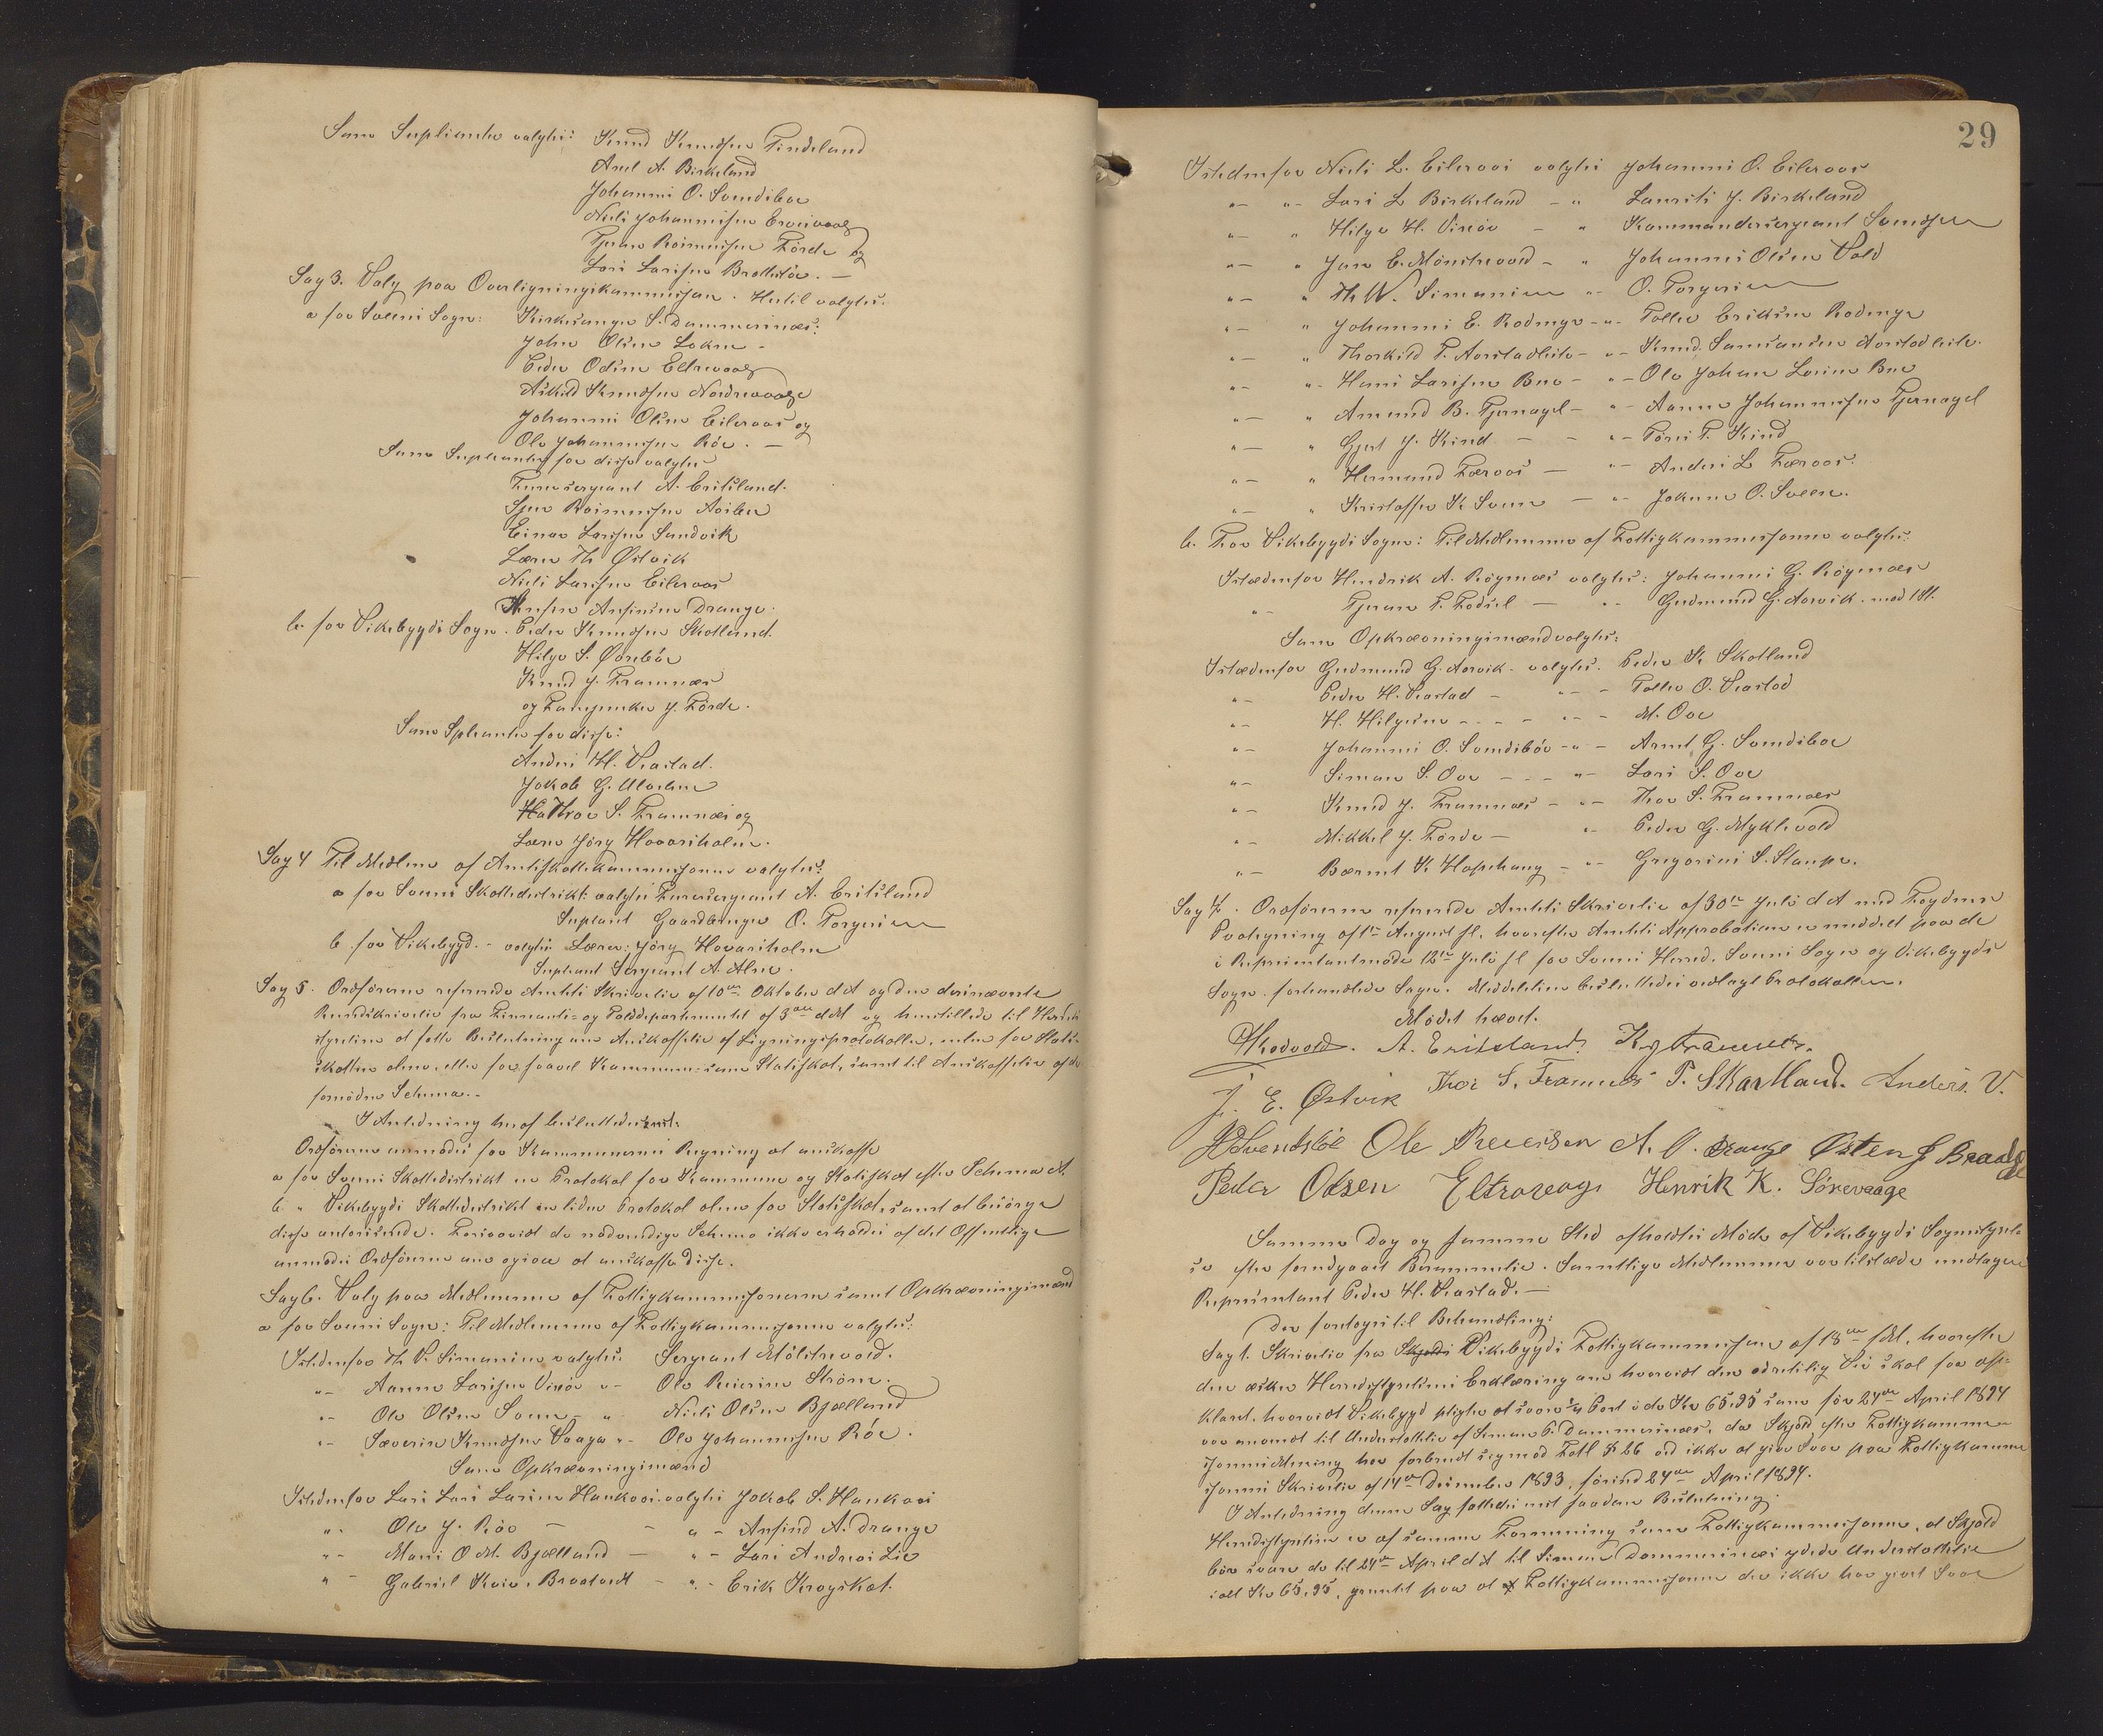 Som Suplianter valgtes: Knud Knudsen Tindeland
Axel A. Birkeland
Johannes O. Svendsboe
Niels Johannesen Ersvaag
Tjeran Rasmussen Förde og
Lars Larsen Brattetöe. —
Sag 3. Valg paa Overligningskommission. Hertil valgtes.
a for Sveens Sogn: Kirkesanger S. Dommersnæs:
John Olsen Lokne -
Peder Odsen Eltravaag
Askild Knudsen Nordrevaage
Johannes Olsen Eileraas og
Ole Johannesen Röe. —
Som Suplianter for disse valgtes
Furersergeant A. Eritsland.
Sjur Rasmussen
Einar Larsen Sandvik
Lærer Th Østvik
Niels Larsen Eileraas
Ansfin Drange.
b. for Vikebygds Sogn. Peder Knudsen Skotland.
Helge S. Ørseböe
Knud J. Framnæs
og J. Förde.
Som Splianter for disse:
Anders H. Vestad.
Jakob G. Alvsen
Halvor S. Framnæs og
Lærer Jörg Hovarsholm.
Sag 4 Til Medlem af Amtsskattekommissionen valgtes:
a for Sveens Skattedistrikt: valgtes Furersergeant A. Eritsland
Supliant Gaardbruger O. Torgersen
b. for Vikebygd. - valgtes Lærer: Jörg Hovarsholm
Supliant Sergeant A. Alne.
Sag 5. Ordföreren refererede Amtets Skrivelse af 10de Oktober d A og den deri nævnte
Rundskrivelse fra Finants- og Tolddepartementet af 3die d M og henstillede til Herreds
styrelsen at fatte Beslutning om Anskaffelse af Ligningsprotokoller, enten for Stats-
skatten alene, eller for saavel Kommune- som Statsskat, samt til Anskaffelse af de
fornödne Schema. -
I Anledning heraf besluttedes enst:
Ordföreren anmodes for Kommunernes Regning at anskaffe
a for Sveens Skattedistrikt en Protokol for Kommune og Statsskat efter Schema A.
b " Vikebygds Skattedistrikt en liden Protokol alene for Statsskat, samt at besörge
disse autoriserede. Forsaavidt de nödvendige Schema ikke erholdes af det Offentlige
anmodes Ordföreren om ogsaa at anskaffe disse.
Sag 6. Valg paa Medlemmer af Fattigkommissionerne samt Opkrævningsmænd
a for Sveens Sogn: Til Medlemmer af Fattigkommissionen valgtes:
Istedenfor Th V. Simonsen valgtes Sergeant Mölstrevold.
" - Aanen Larsen Vixöe " - Ole Reiersen Ström.
" - Ole Olsen Sveen - " Niels Olsen Bjelland
" - Severin Knudsen Vaage " - Ole Johannesen Röe.
Som Opkrævningsmænd
Istedenfor Lars Lars Larsen Haukaas. valgtes Jakob S. Haukaas
" - Ole J. Röe — - " - Ansfind A. Drange
" - Mons O M. Bjelland — " - Lars Andreas Lie
" - Gabriel Brastvedt - " - Erik Krogskat.
29
Istedenfor Niels L. Eileraas valgtes Johannes O. Eileraas
" - " - Lars L Birkeland - " Laurits J. Birkeland
" - " Helge H. Vixöe - " Kommandersergeant Svendsen
" - " Jens E. Mönstrevold - " Johannes Olsen Vold
" - " Th W. Simonsen " - O. Torgersen
" - " Johannes E. Rodenge - " - Tollev Eriksen Rodenge
" - " Thorkild T. Aarstadlid - " - Knud Samsonsen Aarstadlid.
" - " - Hans Larsen Boe - " - Ole Johan Larsen Boe
" - " Amund B. Tjernagel - " - Aanen Johannesen Tjernagel
" - " Gjert J. Kind - - " - Törris T. Kind
" - " Hermund Færaas — " - Anders L Færaas.
" - " Kristoffer K Sveen — " - Johan O. Sveen.
b. For Vikebygds Sogn: Til Medlemmer af Fattigkommissionen valgtes
Istedenfor Hendrik A. Rögenæs valgtes: Johannes G. Rögenæs
" - Tjeran P. Fodsel — " - Gudmund G. Aarvik. med 1 St.
Som Opkrævningsmænd valgtes:
Istedenfor Gudmund G. Aarvik - valgtes. Peder K. Skotland
" - Peder H. Vestad - " - - Tollev O. Vestad
" - H. Helgesen - - - - " - - M. Ove
" - Johannes O. Svendsböe - " - Arent G. Svendsboe
" - Simon S. Ove - - - " - Lars S. Ove
" - Knud J. Framnæs - " - Thor S. Framnæs
" - Mikkel J. Förde - " - Peder G. Myklevold
" - Bernt K. Hapshaug - " - Gregorius S. Staupe.
Sag 7. Ordföreren refererede Amtets Skrivelse af 30te Juli d A med Fogdens
Paategning af 1ste August s. A., hvorefter Amtets Approbation er meddelt paa de
i Repræsentantmöde 12te Juli s A for Sveens Herred, Sveens Sogn og Vikebygds
Sogn forhandlede Sager. Meddelelsen besluttedes vedlagt Protokollen.
Mödet hævet.
A. Eritsland. K. J. Framnes.
J. E. Østvik Thor S. Framnes P. Skartland. Anders. V.
Ole Reiersen A. A. Drange Østen J Braadt
Peder Odsen Eltravaag Henrik K. Sörevaage
Samme Dag og samme Sted afholdtes Möde af Vikebygds Sognestyrel-
se efter forudgaaet Berammelse. Samtlige Medlemmer var tilstede undtagen
Repræsentant Peder H. Vestad. —
Der foretoges til Behandling:
Sag 1. Skrivelse fra Vikebygds Fattigkommission af 13de f M. hvorefter
den ønsker Herredsstyrelsens Erklæring om hvorvidt den paa af-
klaret, hvorvidt Vikebygd pligter at svare Part i de Kr 65,95 som för 24de April 1894
var anvendt til Understøttelse af Simon P. Dommersnæs, da Skjold efter Fattigkommis-
sionens Mening har forbrudt sig mod Fattl § 26 ved ikke at give Svar paa Fattigkommis
sionens Skrivelse af 14de December 1893, förend 24de April 1894.
I Anledning denne Sag fattedes enst saadan Beslutning:
Herredsstyrelsen er af samme Formening som Fattigkommissionen, at Skjold
bör svare de til 24de April d A til Simon Dommersnæs ydede Understøttelse
ialt Kr 65,95, grundet paa at Fattigkommissionen der ikke har givet Svar